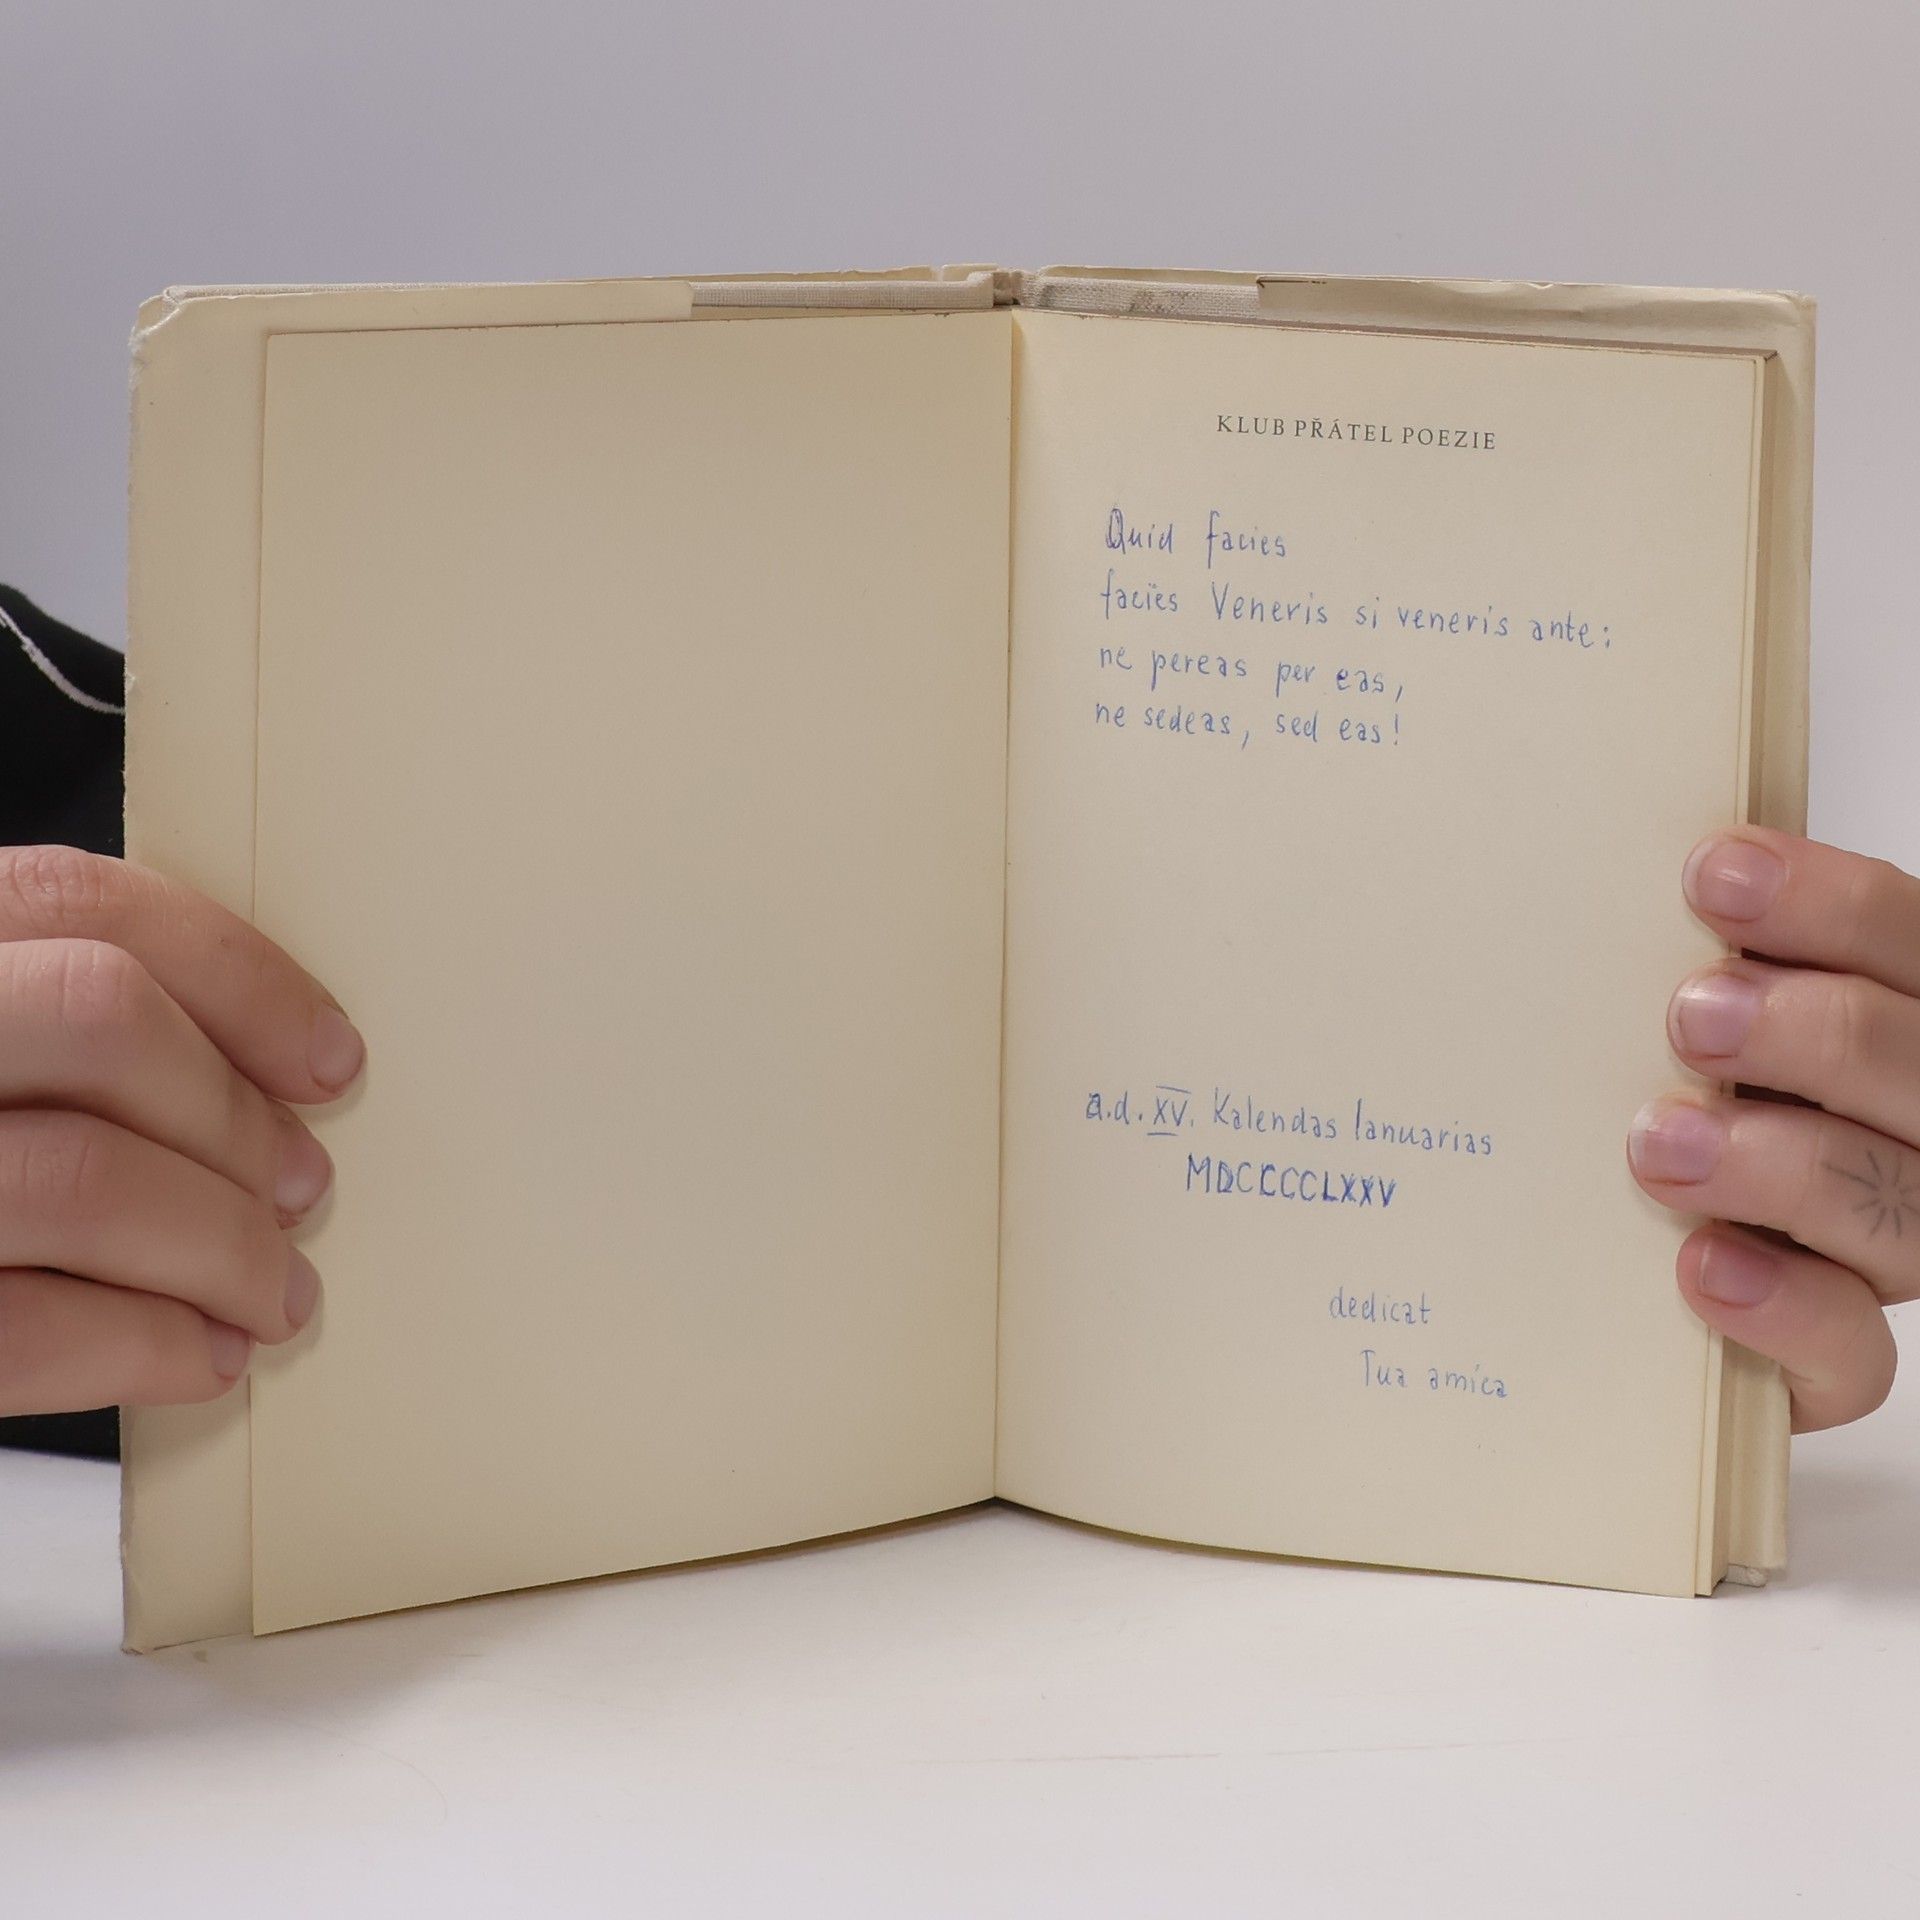 KLUB PŘÁTEL POEZIE
Quid facies
faciës Veneris si veneris ante:
ne pereas per eas,
ne sedeas, sed eas!
a.d. XV. Kalendas Ianuarias
MDCCCCLXXV
dedicat
Tua amica